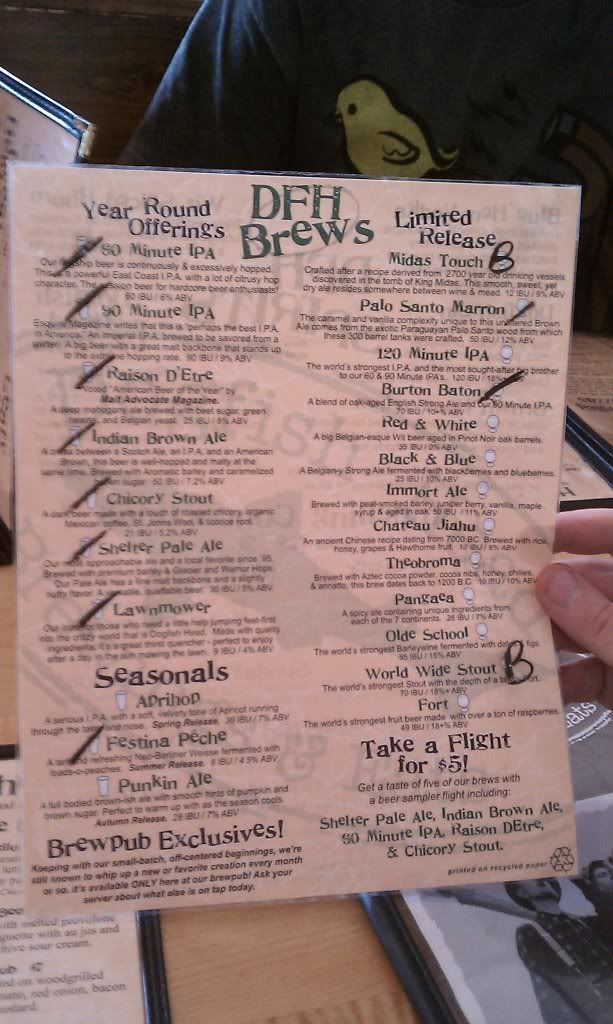 DFH
Brews
Year Round
Offerings
60 Minute IPA
Our flagship beer is continuously & excessively hopped.
This is a powerful East Coast I.P.A. with a lot of citrusy hop
character. The session beer for hardcore beer enthusiasts!
60 IBU / 6% ABV
90 Minute IPA
Esquire Magazine writes that this is "perhaps the best I.P.A.
in America. An Imperial I.P.A. brewed to be savored from a
snifter. A big beer with a great malt backbone that stands up
to the extreme hopping rate. 90 IBU / 9% ABV
Raison D'Etre
Voted "American Beer of the Year" by
Malt Advocate Magazine.
A deep mahogany ale brewed with beet sugar, green
raisins, and Belgian yeast. 25 IBU / 8% ABV
Indian Brown Ale
A cross between a Scotch Ale, an I.P.A. and an American
Brown, this beer is well-hopped and malty at the
same time. Brewed with Aromatic barley and caramelized
brown sugar. 50 IBU / 7.2% ABV
Chicory Stout
A dark beer made with a touch of roasted chicory, organic
Mexican coffee, St. Johns Wort, & licorice root.
21 IBU / 5.2% ABV
Shelter Pale Ale
Our most approachable ale and a local favorite since '95.
Brewed with premium barley & Glacier and Warrior Hops.
Our Pale Ale has a fine malt backbone and a slightly
nutty flavor. A versatile, quaffable beer. 30 IBU / 5% ABV
Lawnmower
Our intro for those who need a little help jumping feet-first
into the crazy world that is Dogfish Head. Made with quality
ingredients, it's a great thirst quencher - perfect to enjoy
after a day in the sun mowing the lawn. 9 IBU / 4% ABV
Seasonals
Aprihop
A serious I.P.A. with a soft, velvety tone of Apricot running
through the taste and nose. Spring Release. 30 IBU / 7% ABV
Festina Pêche
A tart and refreshing Neo-Berliner Weisse fermented with
loads-o-peaches. Summer Release. 8 IBU / 4.5% ABV
Punkin Ale
A full bodied brown-ish ale with smooth hints of pumpkin and
brown sugar. Perfect to warm up with as the season cools.
Autumn Release. 28 IBU / 7% ABV
Brewpub Exclusives!
Keeping with our small-batch, off-centered beginnings, we're
still known to whip up a new or favorite creation every month
or so. It's available ONLY here at our brewpub! Ask your
server about what else is on tap today.
Limited
Release
Midas Touch B
Crafted after a recipe derived from 2700 year old drinking vessels
discovered in the tomb of King Midas. This smooth, sweet, yet
dry ale resides somewhere between wine & mead. 12 IBU / 9% ABV
Palo Santo Marron
The caramel and vanilla complexity unique to this unfiltered Brown
Ale comes from the exotic Paraguayan Palo Santo wood from which
these 300 barrel tanks were crafted. 50 IBU / 12% ABV
120 Minute IPA
The world's strongest I.P.A. and the most sought-after big brother
to our 60 & 90 Minute IPA's. 120 IBU / 18% ABV
Burton Baton
A blend of oak-aged English Strong Ale and our 90 Minute I.P.A.
70 IBU / 10+% ABV
Red & White
A big Belgian-esque Wit beer aged in Pinot Noir oak barrels.
35 IBU / ABV
Black & Blue
A Belgian-y Strong Ale fermented with blackberries and blueberries.
25 IBU / 10% ABV
Immort Ale
Brewed with peat-smoked barley, juniper berry, vanilla, maple
syrup & aged in oak. 50 IBU / 11% ABV
Chateau Jiahu
An ancient Chinese recipe dating from 7000 B.C. Brewed with rice,
honey, grapes & Hawthorne fruit. 10 IBU / 8% ABV
Theobroma
Brewed with Aztec cocoa powder, cocoa nibs, honey, chilies,
& annatto, this brew dates back to 1200 B.C. 10 IBU / 10% ABV
Pangaea
A spicy ale containing unique ingredients from
each of the 7 continents. 28 IBU / 7% ABV
Olde School
The world's strongest Barleywine fermented with dates & figs.
85 IBU / 15% ABV
World Wide Stout B
The world's strongest Stout with the depth of a tawny port.
70 IBU / 18+% ABV
Fort
The world's strongest fruit beer made with over a ton of raspberries.
49 IBU / 18+% ABV
Take a Flight
for $5!
Get a taste of five of our brews with
a beer sampler flight including:
Shelter Pale Ale, Indian Brown Ale,
60 Minute IPA, Raison DEtre,
& Chicory Stout.
printed on recycled paper
with melted provolone
guette with au jus and
hive sour cream.
ed on woodgrilled
mato, red onion, bacon
ustard.